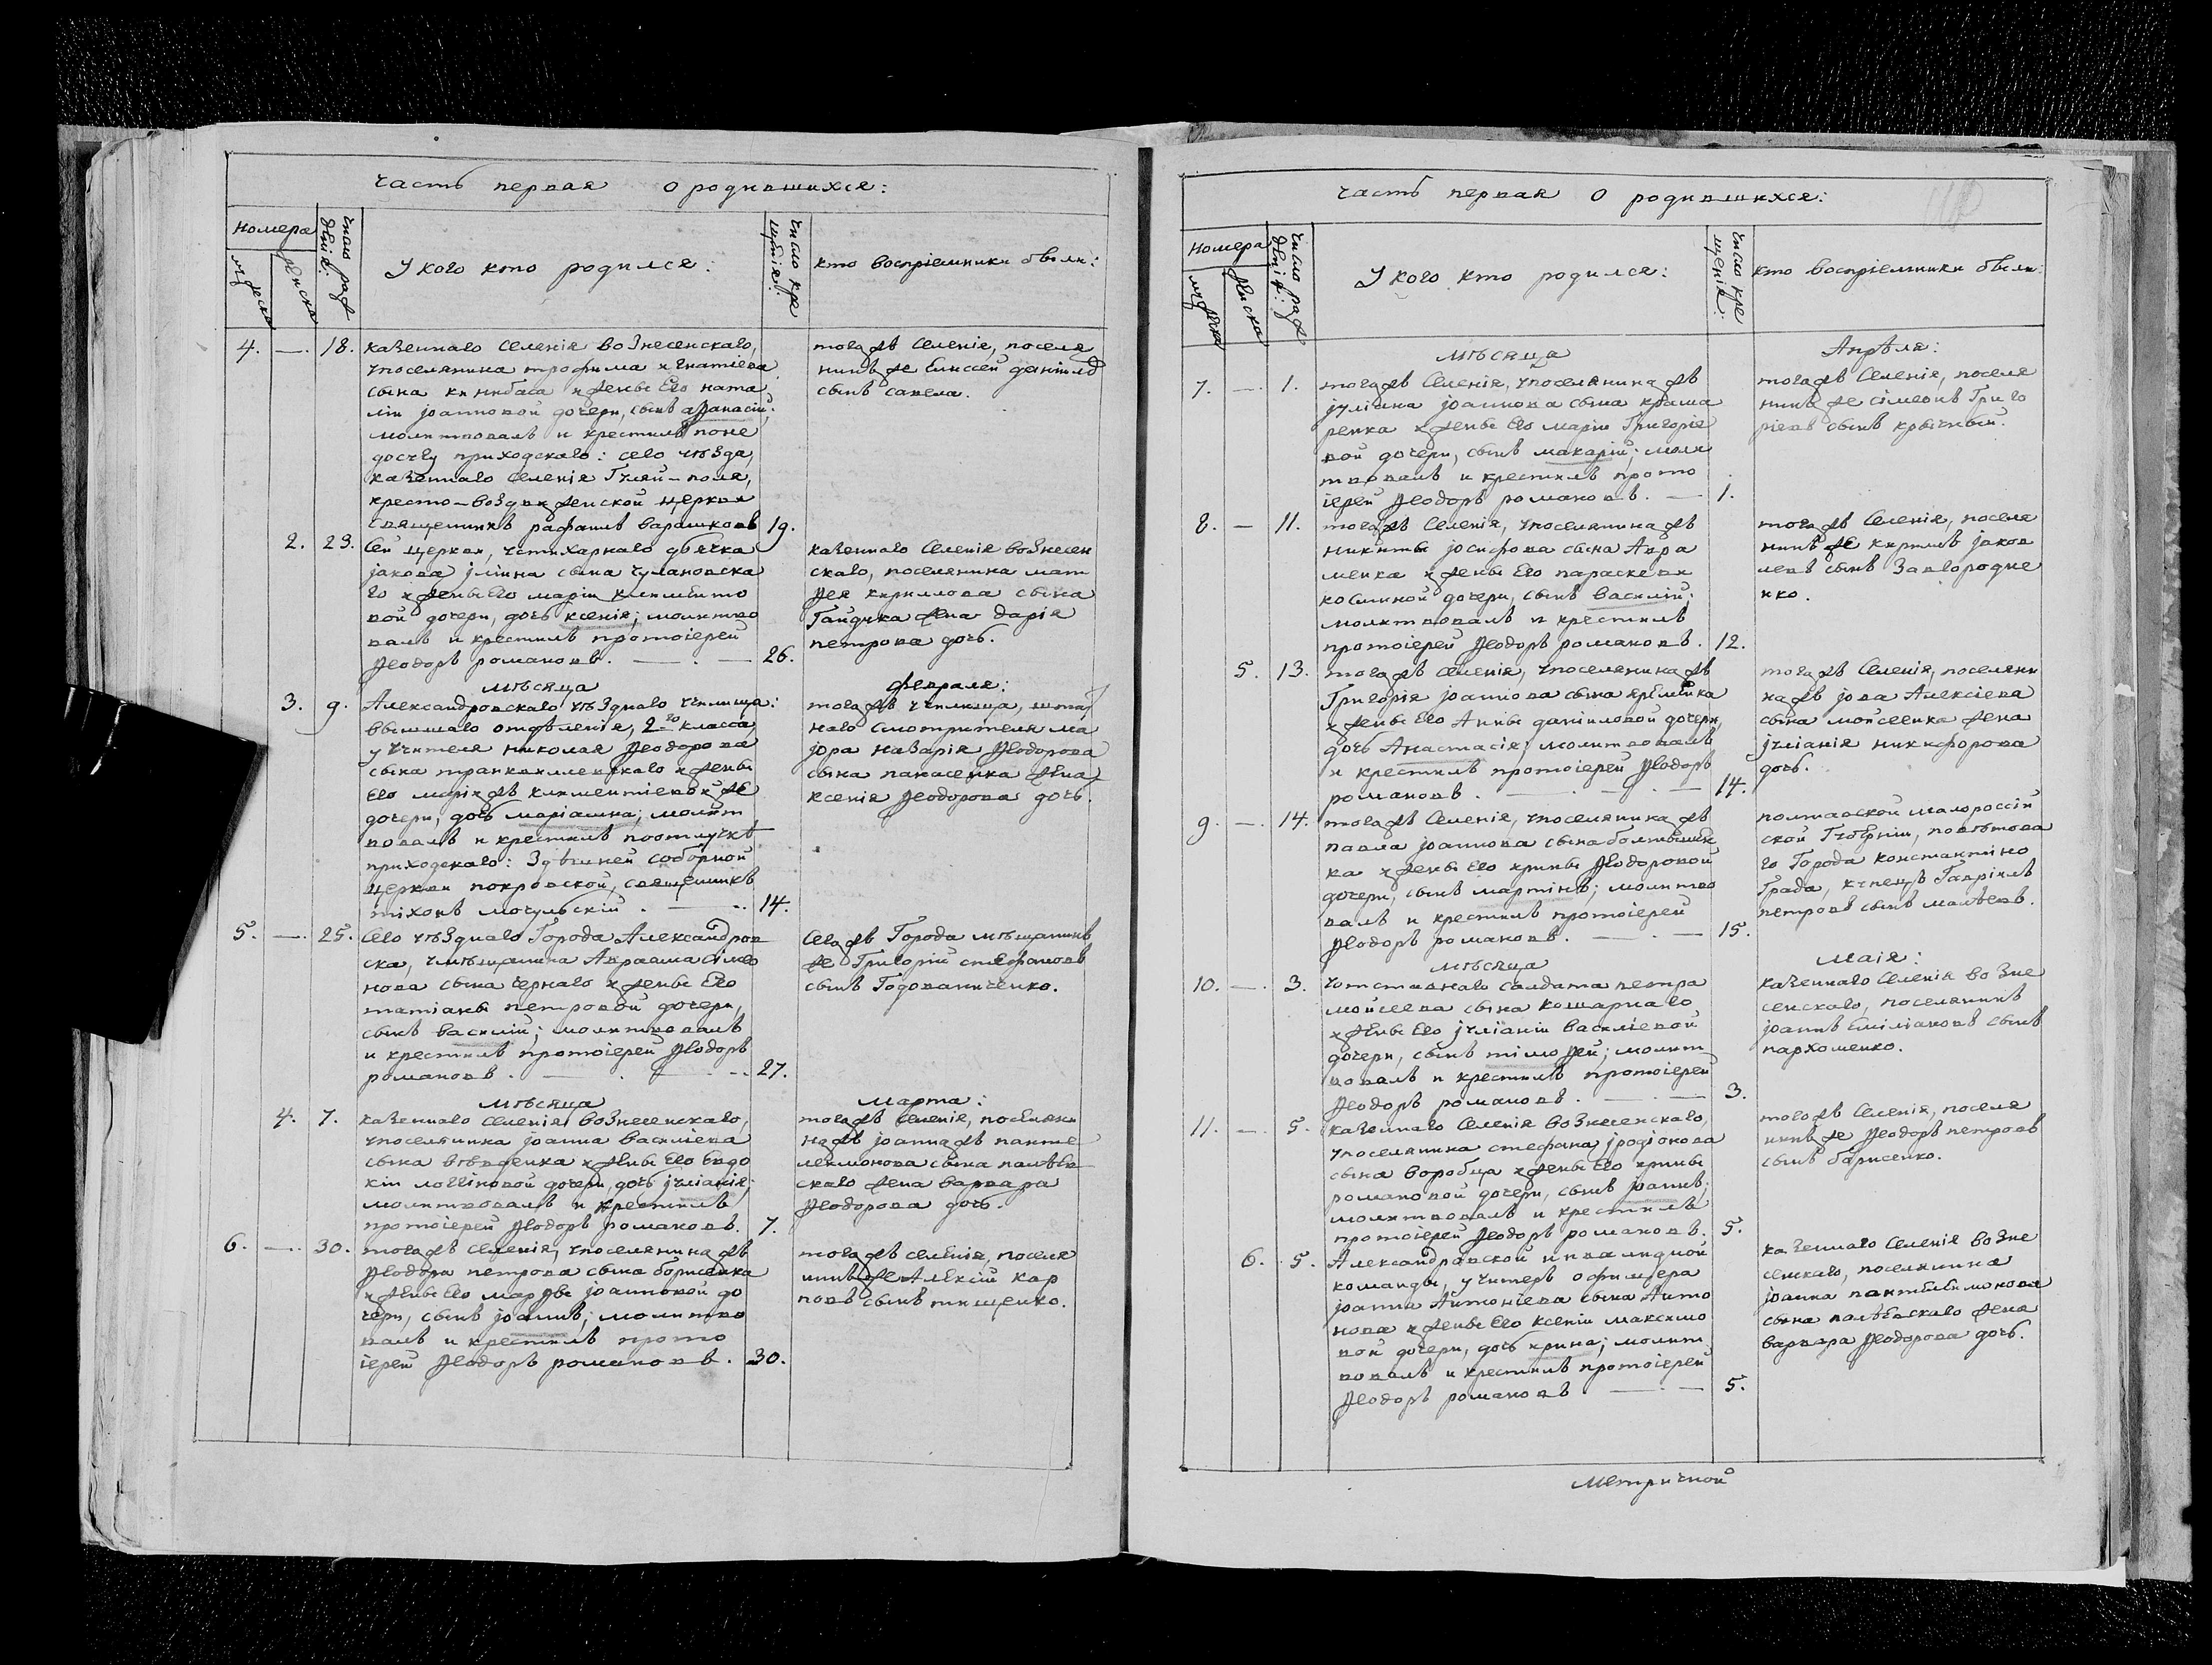 Часть первая о родившихся:
номера
муська
женска
число рож
денія:
У кого кто родился:
число кре
щенія:
кто воспріемники были:
4. — 18. казеннаго селенія вознесенскаго,
упоселянина трофима игнатіева
сына книбаса ижены его ната
ліи іоанновой дочери, сынъ афанасій;
молитвовалъ и крестилъ поне
досугу приходскаго: сего уѣзда,
казеннаго селенія Гуляй-поля,
кресто-воздвиженской церкви
священникъ рафаилъ барашковъ 19.
тогожъ селенія, поселя
нинъ же елиссей даніилов
сынъ савела.
2. 23. Сей церкви, устихарнаго дьячка
іакова іліина сына чулановска
го ижены его маріи климѣнто
вой дочери, дочь ксенія; молитво
валъ и крестилъ протоіерей
Ѳеодоръ романовъ. — 26.
казеннаго селенія вознесен
скаго, поселянина мат
ѳея кирилова сына
Гайдука жена дарія
петрова дочь.
мѣсяца февраля:
3. 9. Александровскаго уѣзднаго училища:
вышшаго отдѣленія, 2го класса,
у учителя николая Ѳеодорова
сына транквилевскаго ижены
его маріижъ климентіевойже
дочери, дочь маріамна; молит
вовалъ и крестилъ поотлучкѣ
приходскаго: Здѣшней соборной
церкви покровской, священникъ
тіхонъ мочульскій. — 14.
тогожъ училища, штат
наго смотрителя ма
іора назарія Ѳеодорова
сына панасенка жена
ксенія Ѳеодорова дочь.
5. — 25. Сего уѣзднаго Города Александров
ска, умѣщанина Авраама сімео
нова сына чернаго ижены его
татіаны петровой дочери,
сынъ василій; молитвовалъ
и крестилъ протоіерей Ѳеодоръ
романовъ. — 27.
Сегожъ Города мѣщанинъ
же Григорій стефановъ
сынъ Годованиченко.
мѣсяца марта:
4. 7. казеннаго селенія вознесенскаго,
упоселянина іоанна василіева
сына вдовенка ижены его евдо
кіи логгіновой дочери, дочь іуліанія;
молитвовалъ и крестилъ
протоіерей Ѳеодоръ романовъ. 7.
тогожъ селенія, поселяни
нажъ іоаннажъ панте
леимонова сына палѣев
скаго жена варвара
Ѳеодорова дочь.
6. — 30. тогожъ селенія, упоселянинажъ
Ѳеодора петрова сына борисенка
ижены его марѳы іоанновой до
чери, сынъ іоаннъ; молитво
валъ и крестилъ прото
іерей Ѳеодоръ романовъ. 30.
тогожъ селенія, поселя
нинъже Алексій кар
повъ сынъ тищенко.
Часть первая о родившихся:
номера
муська
женска
число рож
денія:
У кого кто родился:
число кре
щенія:
кто воспріемники были:
мѣсяца Апрѣля:
7. — 1. тогожъ селенія, упоселянинажъ
іуліана іоаннова сына крама
ренка ижены его маріи Григоріе
вой дочери, сынъ макарій; моли
твовалъ и крестилъ прото
іерей Ѳеодоръ романовъ. — 1.
тогожъ селенія, поселя
нинъ же сімеонъ Григо
ріевъ сынъ крычный.
8. — 11. тогожъ селенія, упоселянинажъ
никиты іосифова сына Авра
менка ижены его параскеви
косминой дочери, сынъ василій;
молитвовалъ и крестилъ
протоіерей Ѳеодоръ романовъ. 12.
тогожъ селенія, поселя
нинъ же кирилъ іаков
левъ сынъ Завгородне
нко.
5. 13. тогожъ селенія, упоселянинажъ
Григорія іоаннова сына яремѣнка
ижены его Анны даніиловой дочери,
дочь Анастасія; молитвовалъ
и крестилъ протоіерей Ѳеодоръ
романовъ. — 14.
тогожъ селенія, поселяни
нажъ іова Алексіева
сына мойсеенка жена
іуліанія никифорова
дочь.
9. — 14. тогожъ селенія, упоселянинажъ
павла іоаннова сына болтышик
ка ижены его ирины Ѳеодоровой
дочери, сынъ мартінъ; молитво
валъ и крестилъ протоіерей
Ѳеодоръ романовъ. — 15.
полтавской малороссій
ской Губѣрніи, повѣтова
го Города константіно
Града, купецъ Гавріилъ
петровъ сынъ малѣевъ.
мѣсяца маія:
10. — 3. Уотставнаго салдата петра
мойсеева сына кошарнаго
ижены его іуліаніи василіевой
дочери, сынъ тімоѳей; молит
вовалъ и крестилъ протоіерей
Ѳеодоръ романовъ. — 3.
казеннаго селенія возне
сенскаго, поселянинъ
іоаннъ еміліановъ сынъ
пархоменко.
11. — 5. казеннаго селенія вознесенскаго,
упоселянина стефана іродіонова
сына воробца ижены его ирины
романовой дочери, сынъ іоаннъ;
молитвовалъ и крестилъ
протоіерей Ѳеодоръ романовъ. 5.
тогожъ селенія, поселя
нинъ же Ѳеодоръ петровъ
сынъ барисенко.
6. 5. Александравской инвалидной
команды, у унтеръ офицера
іоанна Антоніева сына Анто
нова ижены его ксеніи максимо
вой дочери, дочь ирина; молит
вовалъ и крестилъ протоіерей
Ѳеодоръ романовъ — 5.
казеннаго селенія возне
сенскаго, поселянина
іоанна пантѣлѣимонова
сына палѣевскаго жена
варвара Ѳеодорова дочь.
Метричной